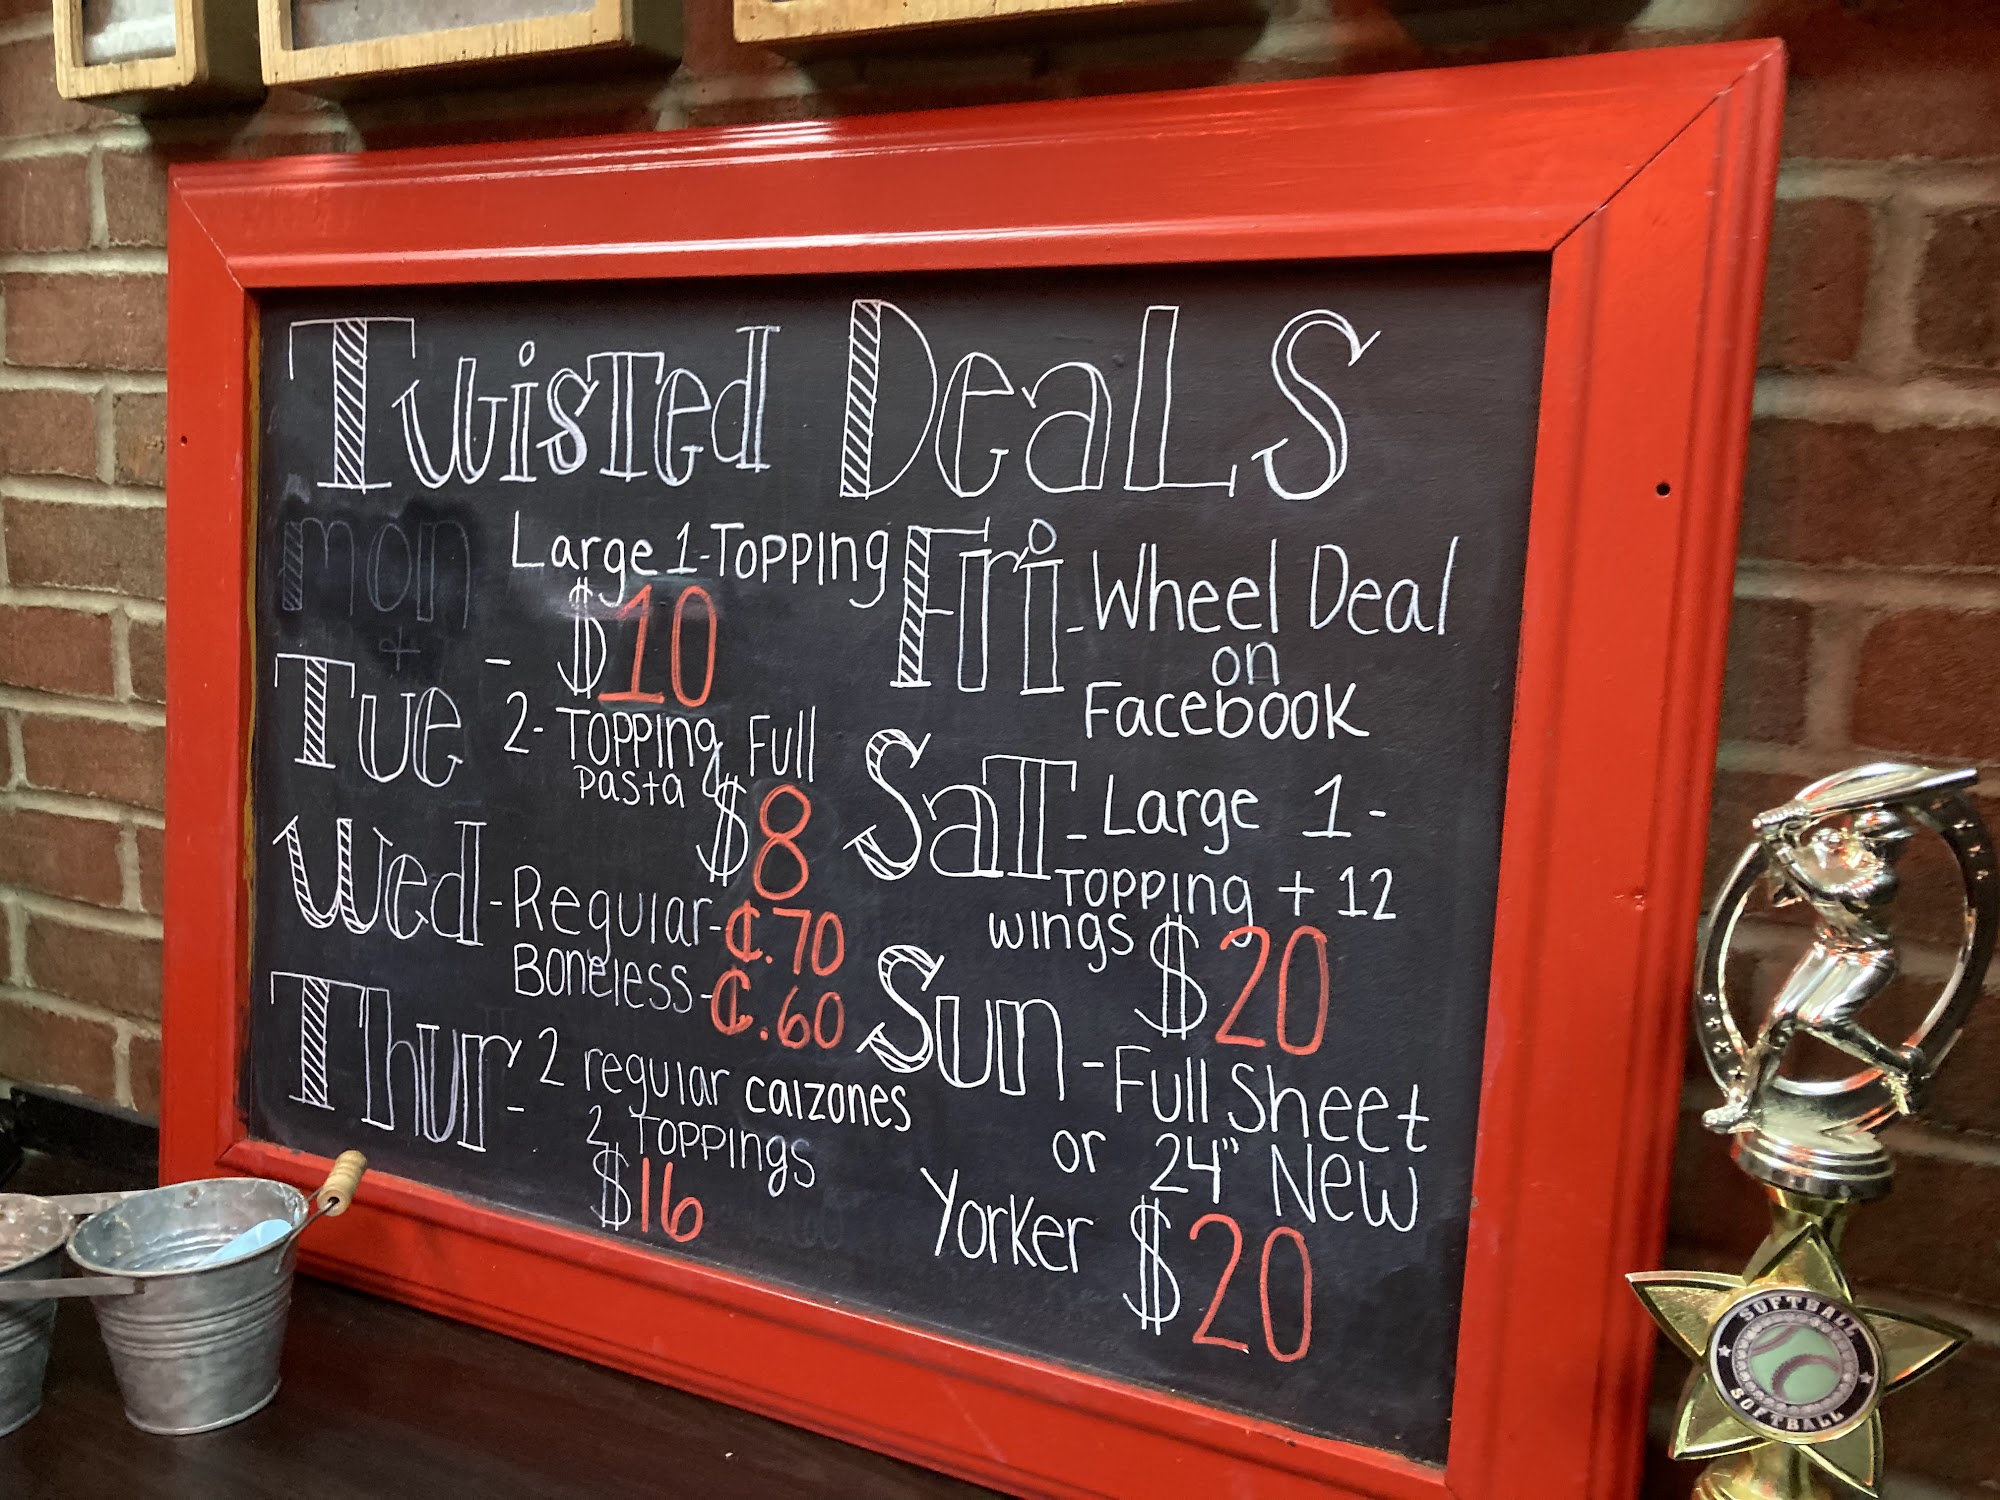 Twisted Deals
mon
+
Tue -
Large 1-Topping
$10
2-Topping Full
pasta $8
Wed - Regular - ¢.70
Boneless - ¢.60
Thur - 2 regular calzones
2 Toppings
$16
Fri - Wheel Deal
on
Facebook
Sat - Large 1-
Topping + 12
wings $20
Sun - Full Sheet
or 24" New
Yorker $20
SOFTBALL
SOFTBALL